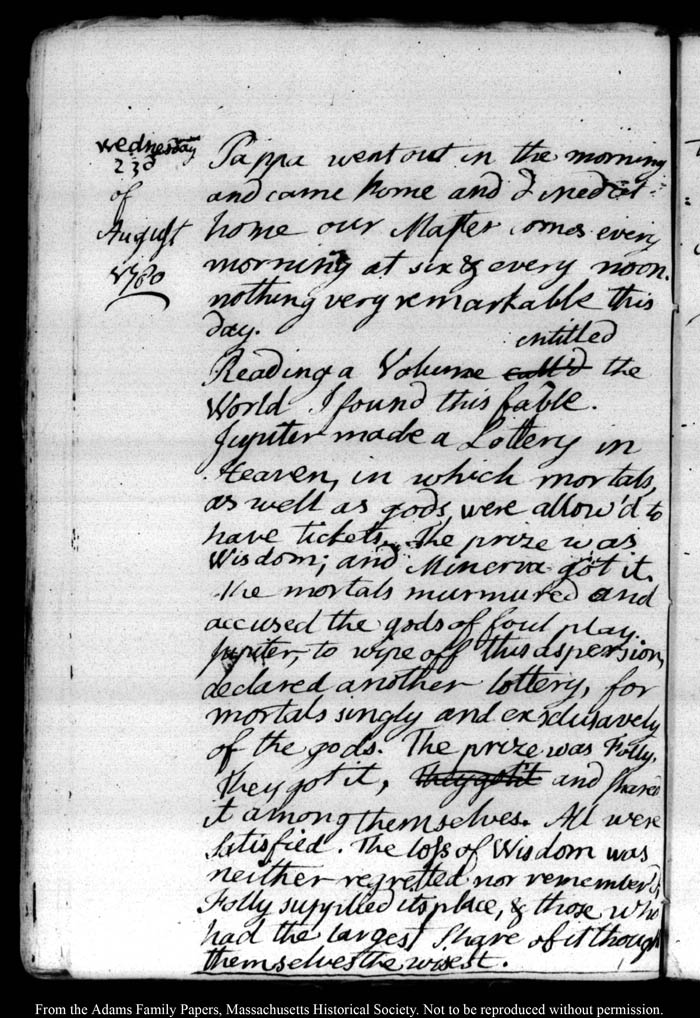 Wednesday
23d
of
August
1780
Pappa went out in the morning
and came home and I dined at
home our Master comes every
morning at six & every noon.
nothing very remarkable this
day.
entitled
Reading a Volume call'd the
World I found this fable.
Jupiter made a Lottery in
Heaven, in which mortals,
as well as gods, were allow'd to
have tickets. The prize was
Wisdom; and Minerva got it.
The mortals murmured and
accused the gods of foul play.
Jupiter, to wipe off this aspersion,
declared another lottery, for
mortals singly and exclusively
of the gods. The prize was Folly.
They got it, they got it and shared
it among themselves. All were
satisfied. The loss of Wisdom was
neither regretted nor remember'd,
Folly supplied its place, & those who
had the largest share of it thought
themselves the wisest.
From the Adams Family Papers, Massachusetts Historical Society. Not to be reproduced without permission.